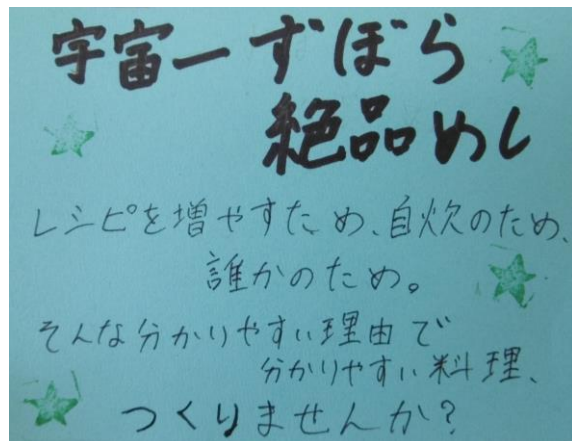 宇宙一ずぼら
絶品めし
レシピを増やすため、自炊のため、
誰かのため。
そんな分かりやすい理由で
分かりやすい料理、
つくりませんか?